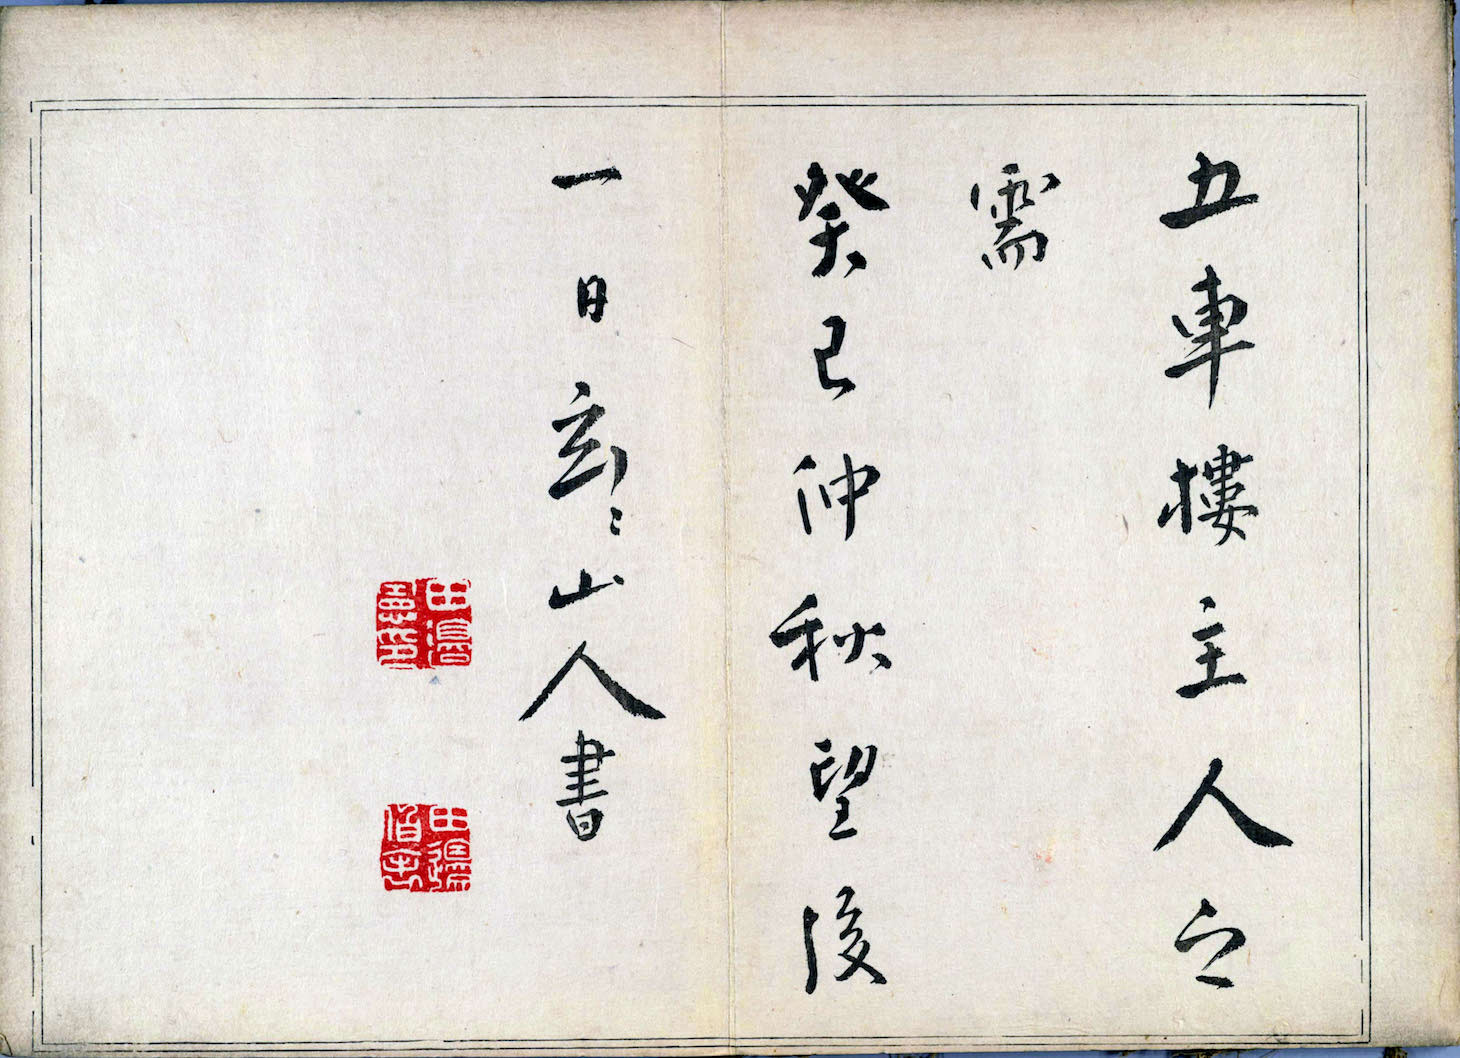 五車樓主人之
需
癸巳仲秋望後
一日玄〻山人書